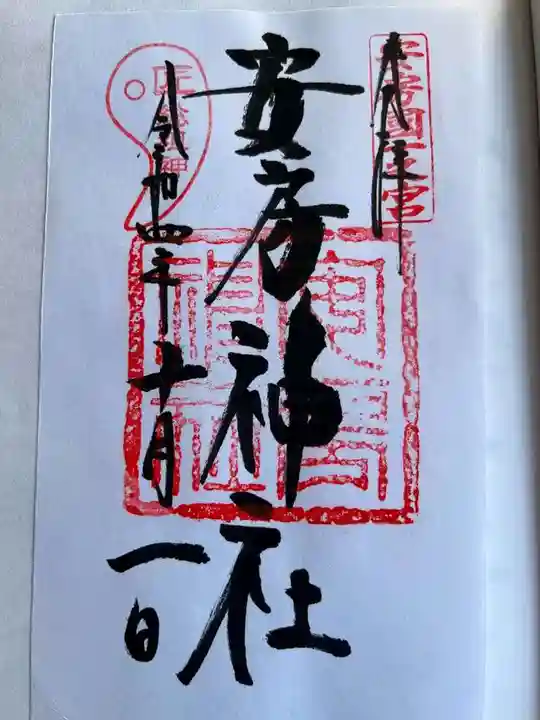 奉拝
安房國一之宮
安房神社
安房神社
令和四年十月
一日